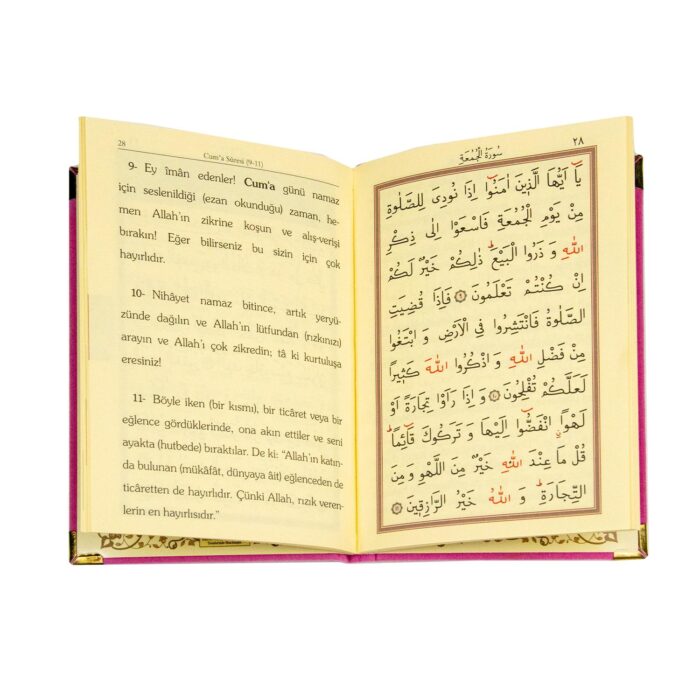 28
Cum'a Sûresi (9-11)
9- Ey îmân edenler! Cum'a günü namaz
için seslenildiği (ezan okunduğu) zaman, he-
men Allah'ın zikrine koşun ve alış-verişi
bırakın! Eğer bilirseniz bu sizin için çok
hayırlıdır.
10- Nihâyet namaz bitince, artık yeryü-
zünde dağılın ve Allah'ın lütfundan (rızkınızı)
arayın ve Allah'ı çok zikredin; tâ ki kurtuluşa
eresiniz!
11- Böyle iken (bir kısmı), bir ticâret veya bir
eğlence gördüklerinde, ona akın ettiler ve seni
ayakta (hutbede) bıraktılar. De ki: "Allah'ın katın-
da bulunan (mükâfât, dünyaya âit) eğlenceden de
ticâretten de hayırlıdır. Çünki Allah, rızık veren-
lerin en hayırlısıdır."
٢٨
سُورَةُ الْجُمُعَةِ
يَٓا اَيُّهَا الَّذ۪ينَ اٰمَنُٓوا اِذَا نُودِيَ لِلصَّلٰوةِ
مِنْ يَوْمِ الْجُمُعَةِ فَاسْعَوْا اِلٰى ذِكْرِ
اللّٰهِ وَ ذَرُوا الْبَيْعَۜ ذٰلِكُمْ خَيْرٌ لَكُمْ
اِنْ كُنْتُمْ تَعْلَمُونَ ﴿٩﴾ فَاِذَا قُضِيَتِ
الصَّلٰوةُ فَانْتَشِرُوا فِي الْاَرْضِ وَ ابْتَغُوا
مِنْ فَضْلِ اللّٰهِ وَ اذْكُرُوا اللّٰهَ كَث۪يرًا
لَعَلَّكُمْ تُفْلِحُونَ ﴿١٠﴾ وَ اِذَا رَاَوْا تِجَارَةً اَوْ
لَهْوًاۨ انْفَضُّٓوا اِلَيْهَا وَ تَرَكُوكَ قَٓائِمًاۜ
قُلْ مَا عِنْدَ اللّٰهِ خَيْرٌ مِنَ اللَّهْوِ وَ مِنَ
التِّجَارَةِۜ وَ اللّٰهُ خَيْرُ الرَّازِق۪ينَ ﴿١١﴾